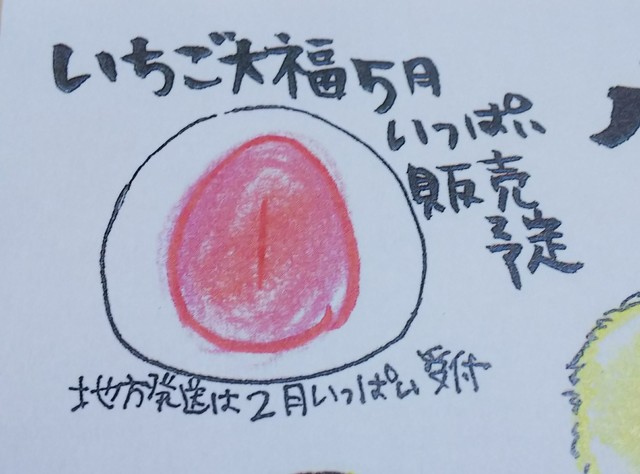 いちご大福5月
いっぱい
販売
予定
地方発送は2月いっぱい受付